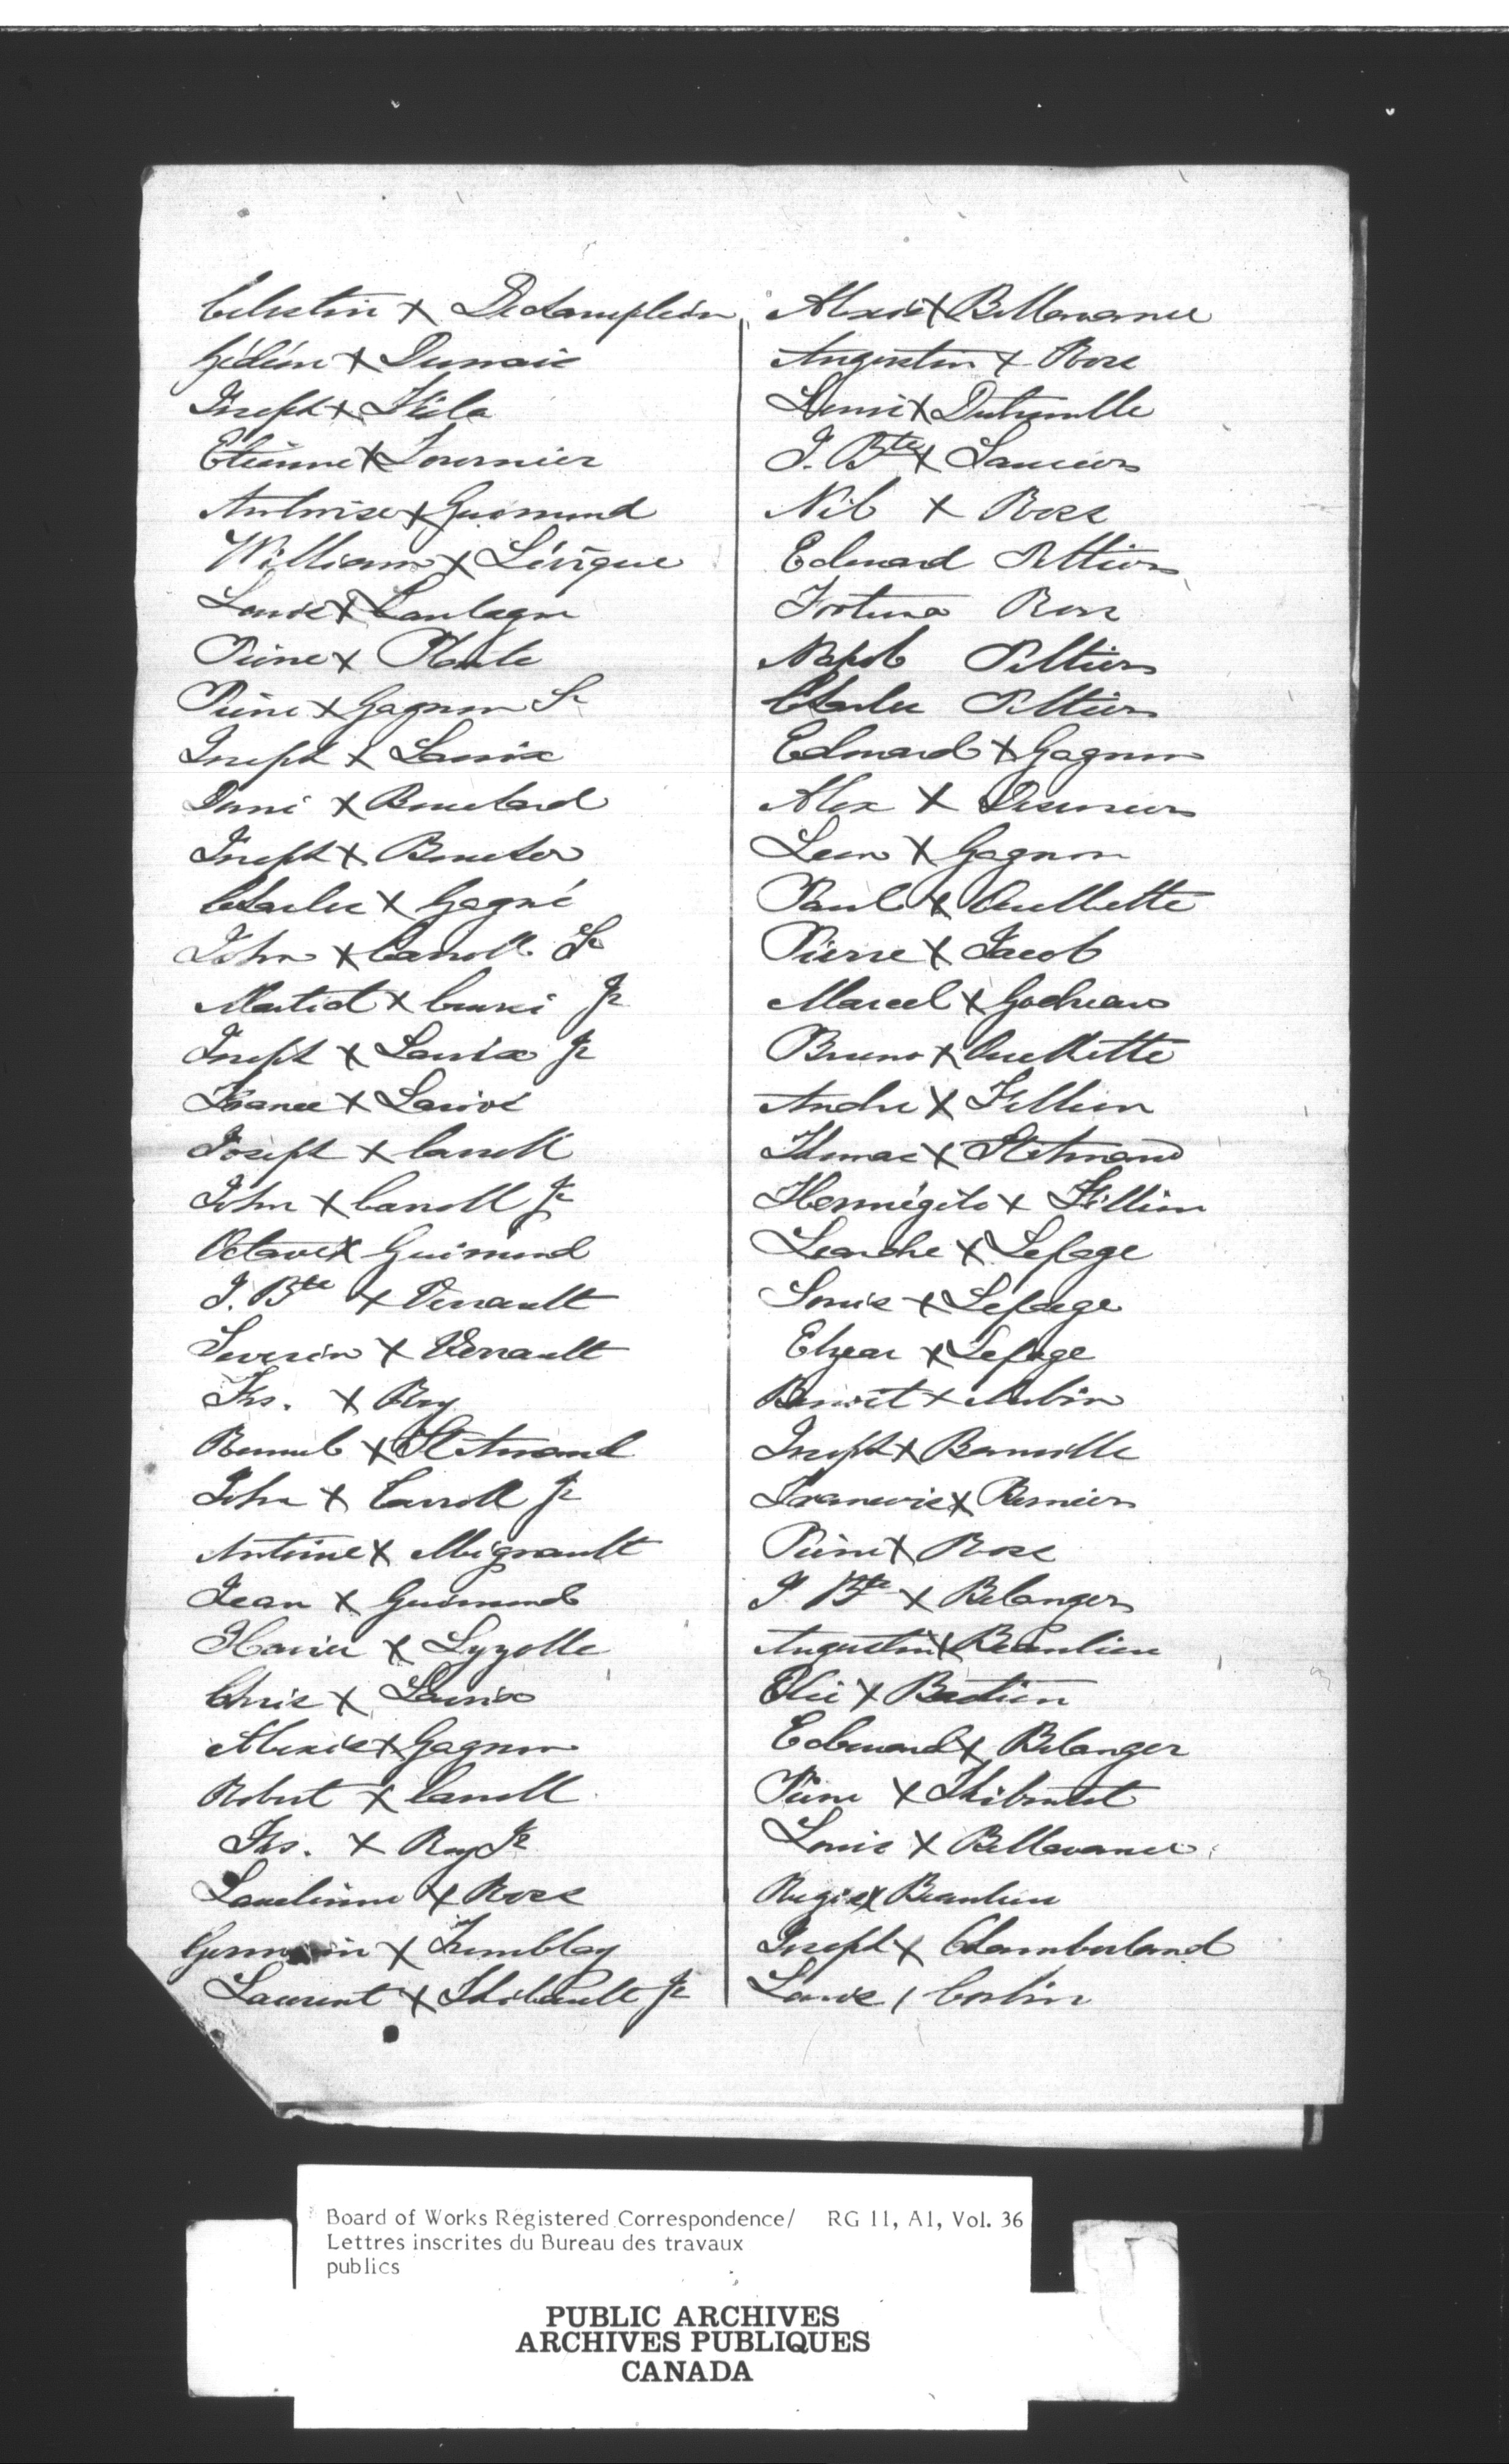 Celestin X Dechamplain
Gédéon X Dumais
Joseph X Fiola
Etienne X Fournier
Ambroise X Guomond
William X Lévèque
Louis X Laulagn
Pierre X Plante
Pierre X Gagnon Sr
Joseph X Lavoix
Dami X Bouchard
Joseph X Boucher
Charles X Gagné
John X Carroll Sr
Martial X Jr
Joseph X Lavoix Jr
France X Lavoix
Joseph X Carroll
John X Carroll Jr
Octave X Guimond
J. Bte X Perrault
Severin X Perrault
Frs. X Roy
Remub X St Amand
John X Carroll Jr
Antoine X Migneault
Jean X Guimond
Xavier X Lyzolle
Chris X Lavoix
Alexis X Gagnon
Robert X Carroll
Frs. X Roy Jr
X Ross
Germain X Tremblay
Laurent X Thibault Jr
Alexis X Bellavance
Augustin X Ross
Louis X Dutremble
J. Bte X Saucier
Nib X Ross
Edouard Peltier
Fortuna Ross
Napol Peltier
Charles Peltier
Edouard X Gagnon
Alex X
Leon X Gagnon
Paul X Ouellette
Pierre X Jacob
Marcel X Godreau
Bruno X Ouellette
Andre X Fillion
Thomas X St Amand
Hermégile X Fillion
Leandre X Lepage
Louis X Lepage
Elzear X Lepage
Benoit X Aubin
Joseph X Banville
Francois X Bernier
Pierre X Ross
J Bte X Belanger
Augustin X Beaulieu
Elie X Bastien
Edouard X Belanger
Pierre X Thiboutot
Louis X Bellavance
Regis X Beaulieu
Joseph X Chamberland
Louis / Corbin
Board of Works Registered Correspondence/ RG 11, A1, Vol. 36
Lettres inscrites du Bureau des travaux
publics
PUBLIC ARCHIVES
ARCHIVES PUBLIQUES
CANADA